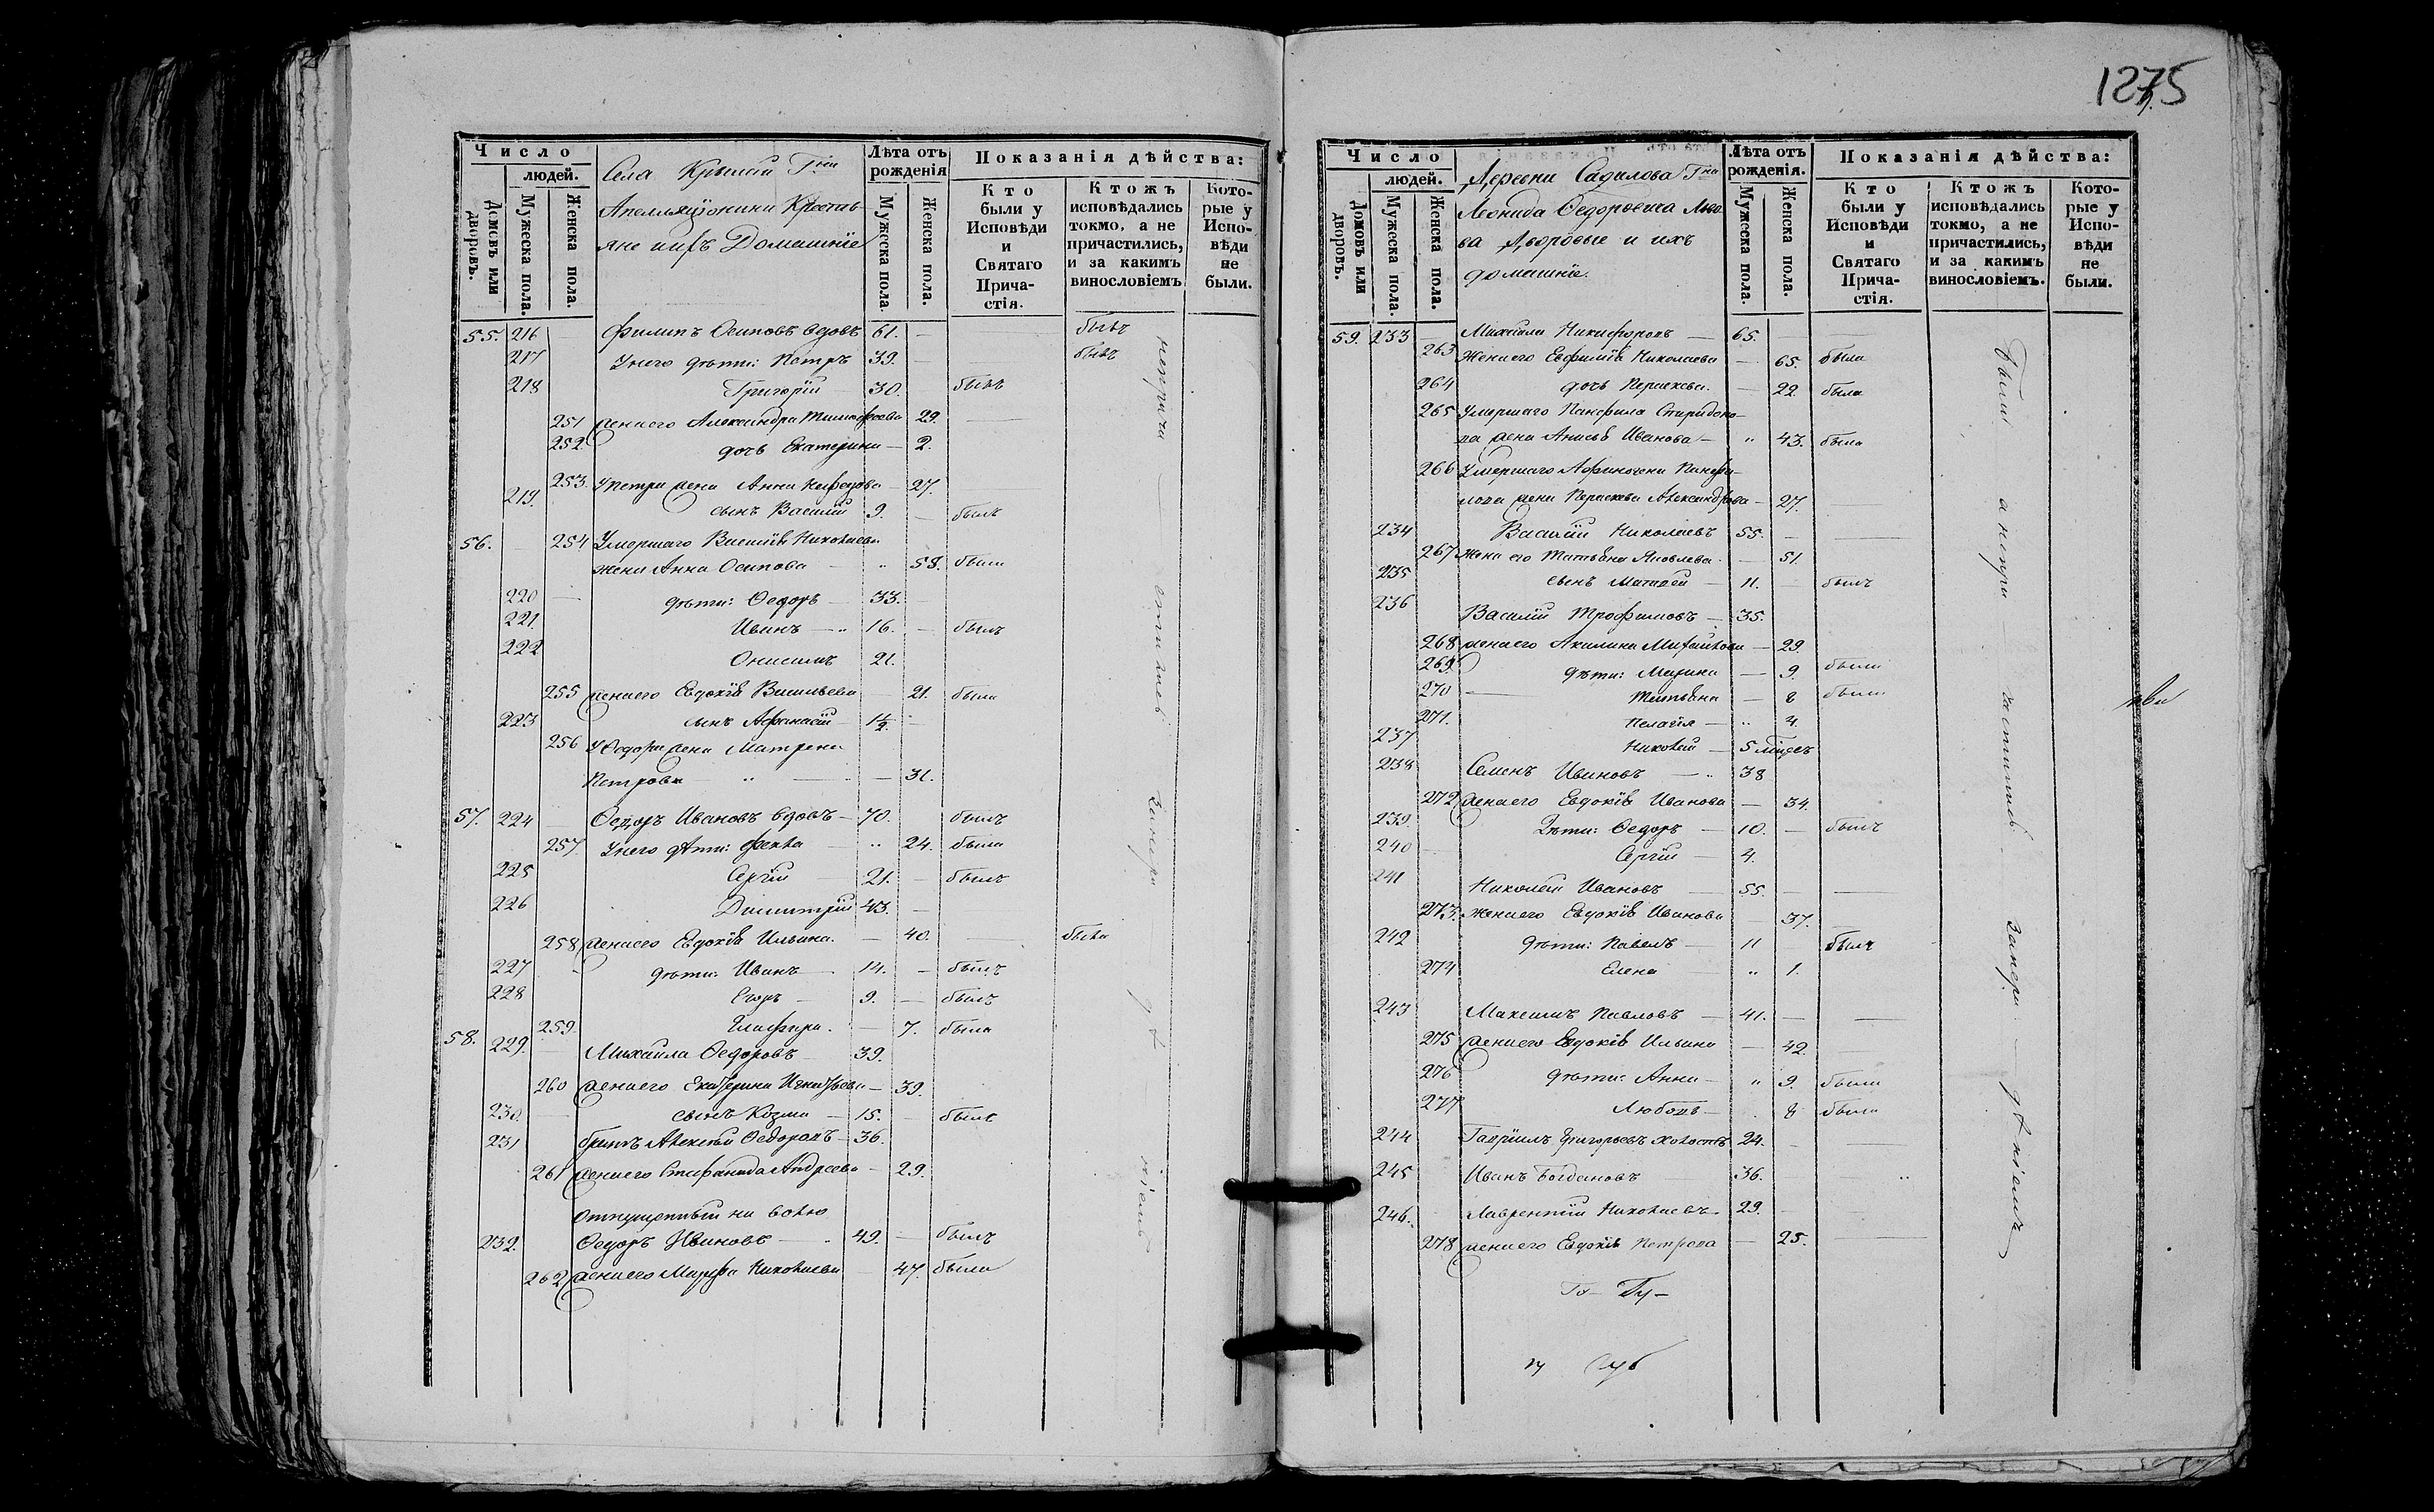 1275
Число
людей.
Домовъ или дворовъ.
Мужеска пола.
Женска пола.
Села Крылии Гжи
Крестья-
яне и ихъ Домашніе
Лѣта отъ рожденія
Мужеска пола.
Женска пола.
Показанія дѣйства:
Кто были у Исповѣди и Святаго Причастія.
Ктожъ исповѣдались токмо, а не причастились, и за какимъ винословіемъ
Которые у Исповѣди не были.
55. 216 — Филипъ Осиповъ вдовъ 61. — былъ
217 Унего дѣти: Петръ 39. — былъ
218 Григорій 30. былъ
251 жена его Александра Тимофеева 29. —
252. дочь Екатерина — 2.
253. У Петра жена Анна — 27.
219. сынъ Василій 9. — былъ
56. — 254 Умершаго Василія Николаева
жена Анна Осипова — „ 58. была
220 — дѣти: Ѳедоръ — 33. —
221. Иванъ — „ 16. — былъ
222 Онисимъ 21.
255 жена его Евдокія Васильева — 21. была
223 сынъ Афанасій — 1½ —
256 У Ѳедора жена Матрена
Петрова „ — — 31.
57. 224 — Ѳедоръ Ивановъ вдовъ — 70. былъ
257. Унего дѣти: Фекла — „ 24. была
225 Сергій — 21. — былъ
226 Димитрій 43. —
258 жена его Евдокія Ильина. — 40. — была
227 дѣти: Иванъ — 14. — былъ
228 Егоръ — 9. — былъ
259. Глафира. — 7. была
58. 229. — Михаила Ѳедоровъ — 39.
260 жена его Екатерина Игнатьева — 39.
230. — сынъ Козма — 15. — былъ
231 братъ Алексѣй Ѳедоровъ — 36.
261 жена его Стефанида Андреева — 29.
Отпущенный на волю
232. Ѳедоръ Ивановъ — 49. — былъ
262 жена его Марфа Николаева — 47. была
Число
людей.
Домовъ или дворовъ.
Мужеска пола.
Женска пола.
Деревни Садилова Гна
Леонида Ѳедоровича Льво-
ва Дворовые и ихъ
домашніе.
Лѣта отъ рожденія.
Мужеска пола.
Женска пола.
Показанія дѣйства:
Кто были у Исповѣди и Святаго Причастія.
Ктожъ исповѣдались токмо, а не причастились, и за какимъ винословіемъ.
Которые у Исповѣди не были.
59. 233 — Михаила Никифоровъ — 65. — —
263 Жена его Евфимія Николаева — 65. была
264 дочь Параскева. — 22 была
265 Умершаго Панфила Спиридоно-
ва жена Анисья Иванова — „ 43. была
266 Умершаго Афиногена Панфи-
лова жена Параскева Александрова — 27. —
234 Василій Николаевъ 55. — —
267 Жена его Татьяна Яковлева. — 51.
235 сынъ Матвей — 11. — былъ
236 Василій Трофимовъ — 35.
268 жена его Акилина Михайлова — 29.
269. дѣти: Марина — 9. была
270 — Татьяна — 8 была
271. Пелагія — „ 4.
237 Николай — 5 мѣсяц.
238 Семенъ Ивановъ — „ 38
272 жена его Евдокія Иванова — 34.
239. Дѣти: Ѳедоръ — 10. — былъ
240 — Сергій — 4.
241 Николай Ивановъ — 55. — —
273. жена его Евдокія Иванова — 37.
242 дѣти: Павелъ — 11 былъ
274 Елена „ 1.
243 Максимъ Павловъ — 41. — —
275 жена его Евдокія Ильина — 42. —
276 дѣти: Анна — „ 9. была
277 Любовь — . 8 была
244 Гавріилъ Григорьевъ холостъ 24. — —
245 Иванъ Богдановъ — 36. — „
246. Лаврентій Николаевъ. 29. —
278 жена его Евдокія Петрова — 25. —